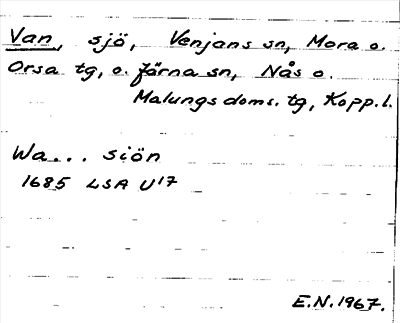 Van, sjö, Venjans sn, Mora o.
Orsa tg, o. Järna sn, Nås o.
Malungs doms. tg, Kopp.l.
Wa... siön
1685 LSA U17
E.N. 1967.